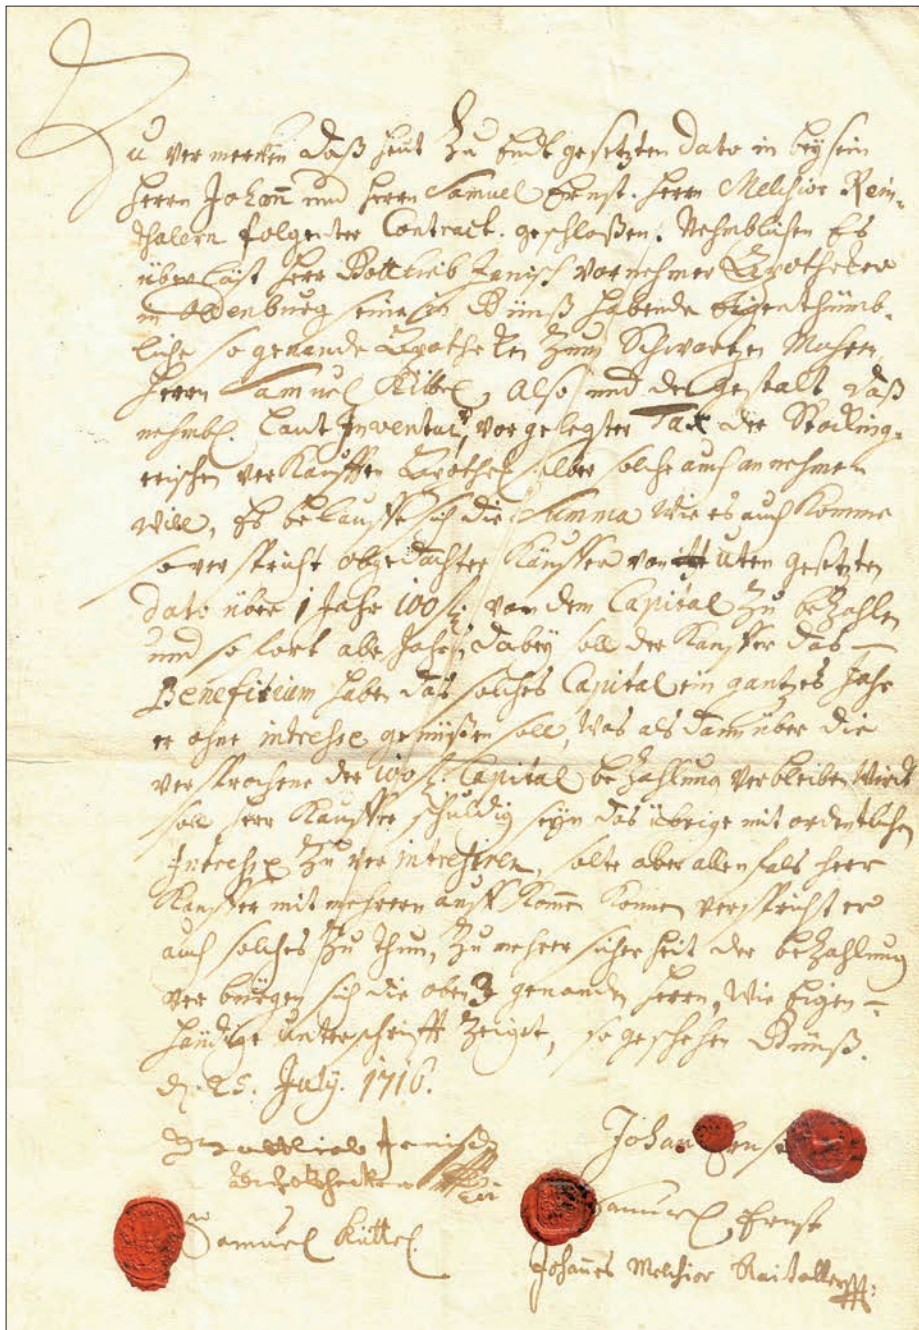 Zu vermerken daß heut zu Endt gesetzten dato in beysein
Herrn Johann und Herrn Samuel Ernst. Herrn Melchior Rein-
thalern folgenter Contract. geschloßen. Nehmblichen Es
überläst Herr Gottlieb Jenisch vornehmer Apothecker
in Ödenburg seine in Günß habende Eigenthümb-
liche so genande Apothecken Zum Schwartzen Mohren
Herrn Samuel Küttel, also und der gestalt daß
nehmbl. Laut Inventary, vorgelegter Tax der
verkaufften Apothek selber solche auch annehmen
will, Es belauffe sich die Summa wie es auch komme
so verspricht obgedachter Käuffer von uten gesetzten
dato über 1 Jahr 100 fl. von dem Capital zu bezahlen
und so fort alle Jahr, dabey soll der Kauffer das —
Beneficium haben das solches Capital ein gantzes Jahr
er ohne intresse genüßen soll, was als dann über die
versprochene der 100 fl. Capital bezahlung verbleiben wirdt
soll Herr Kauffer schuldig seyn das übrige mit ordentlichen
Intresse zu verintresiren, solte aber allenfals Herr
Kauffer mit mehrern auff komen können verspricht er
auch solches zu thun, zu mehrer sicherheit der bezahlung
verbürgen sich die oben 3 genanden Herrn, wie Eigen-
händige unterschrifft Zeiget, so geschehen Günß.
d. 25. July. 1716.
Gottlieb Jenisch
Apothecker
Samuel Küttel.
Johan Ernst
Samuel Ernst
Johannes Melchior Raitaller